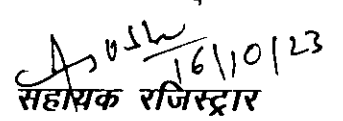 16/10/23
सहायक रजिस्ट्रार